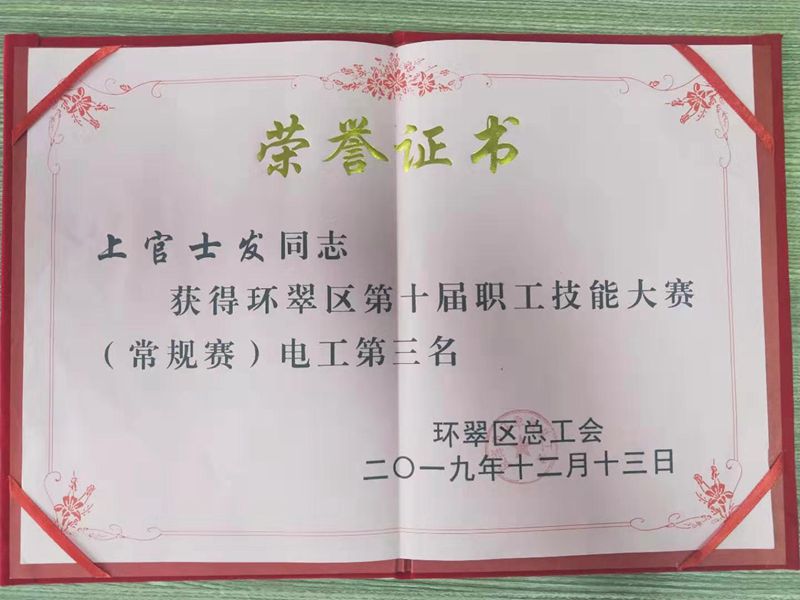 荣誉证书
上官士发同志
获得环翠区第十届职工技能大赛
（常规赛）电工第三名
环翠区总工会
二〇一九年十二月十三日